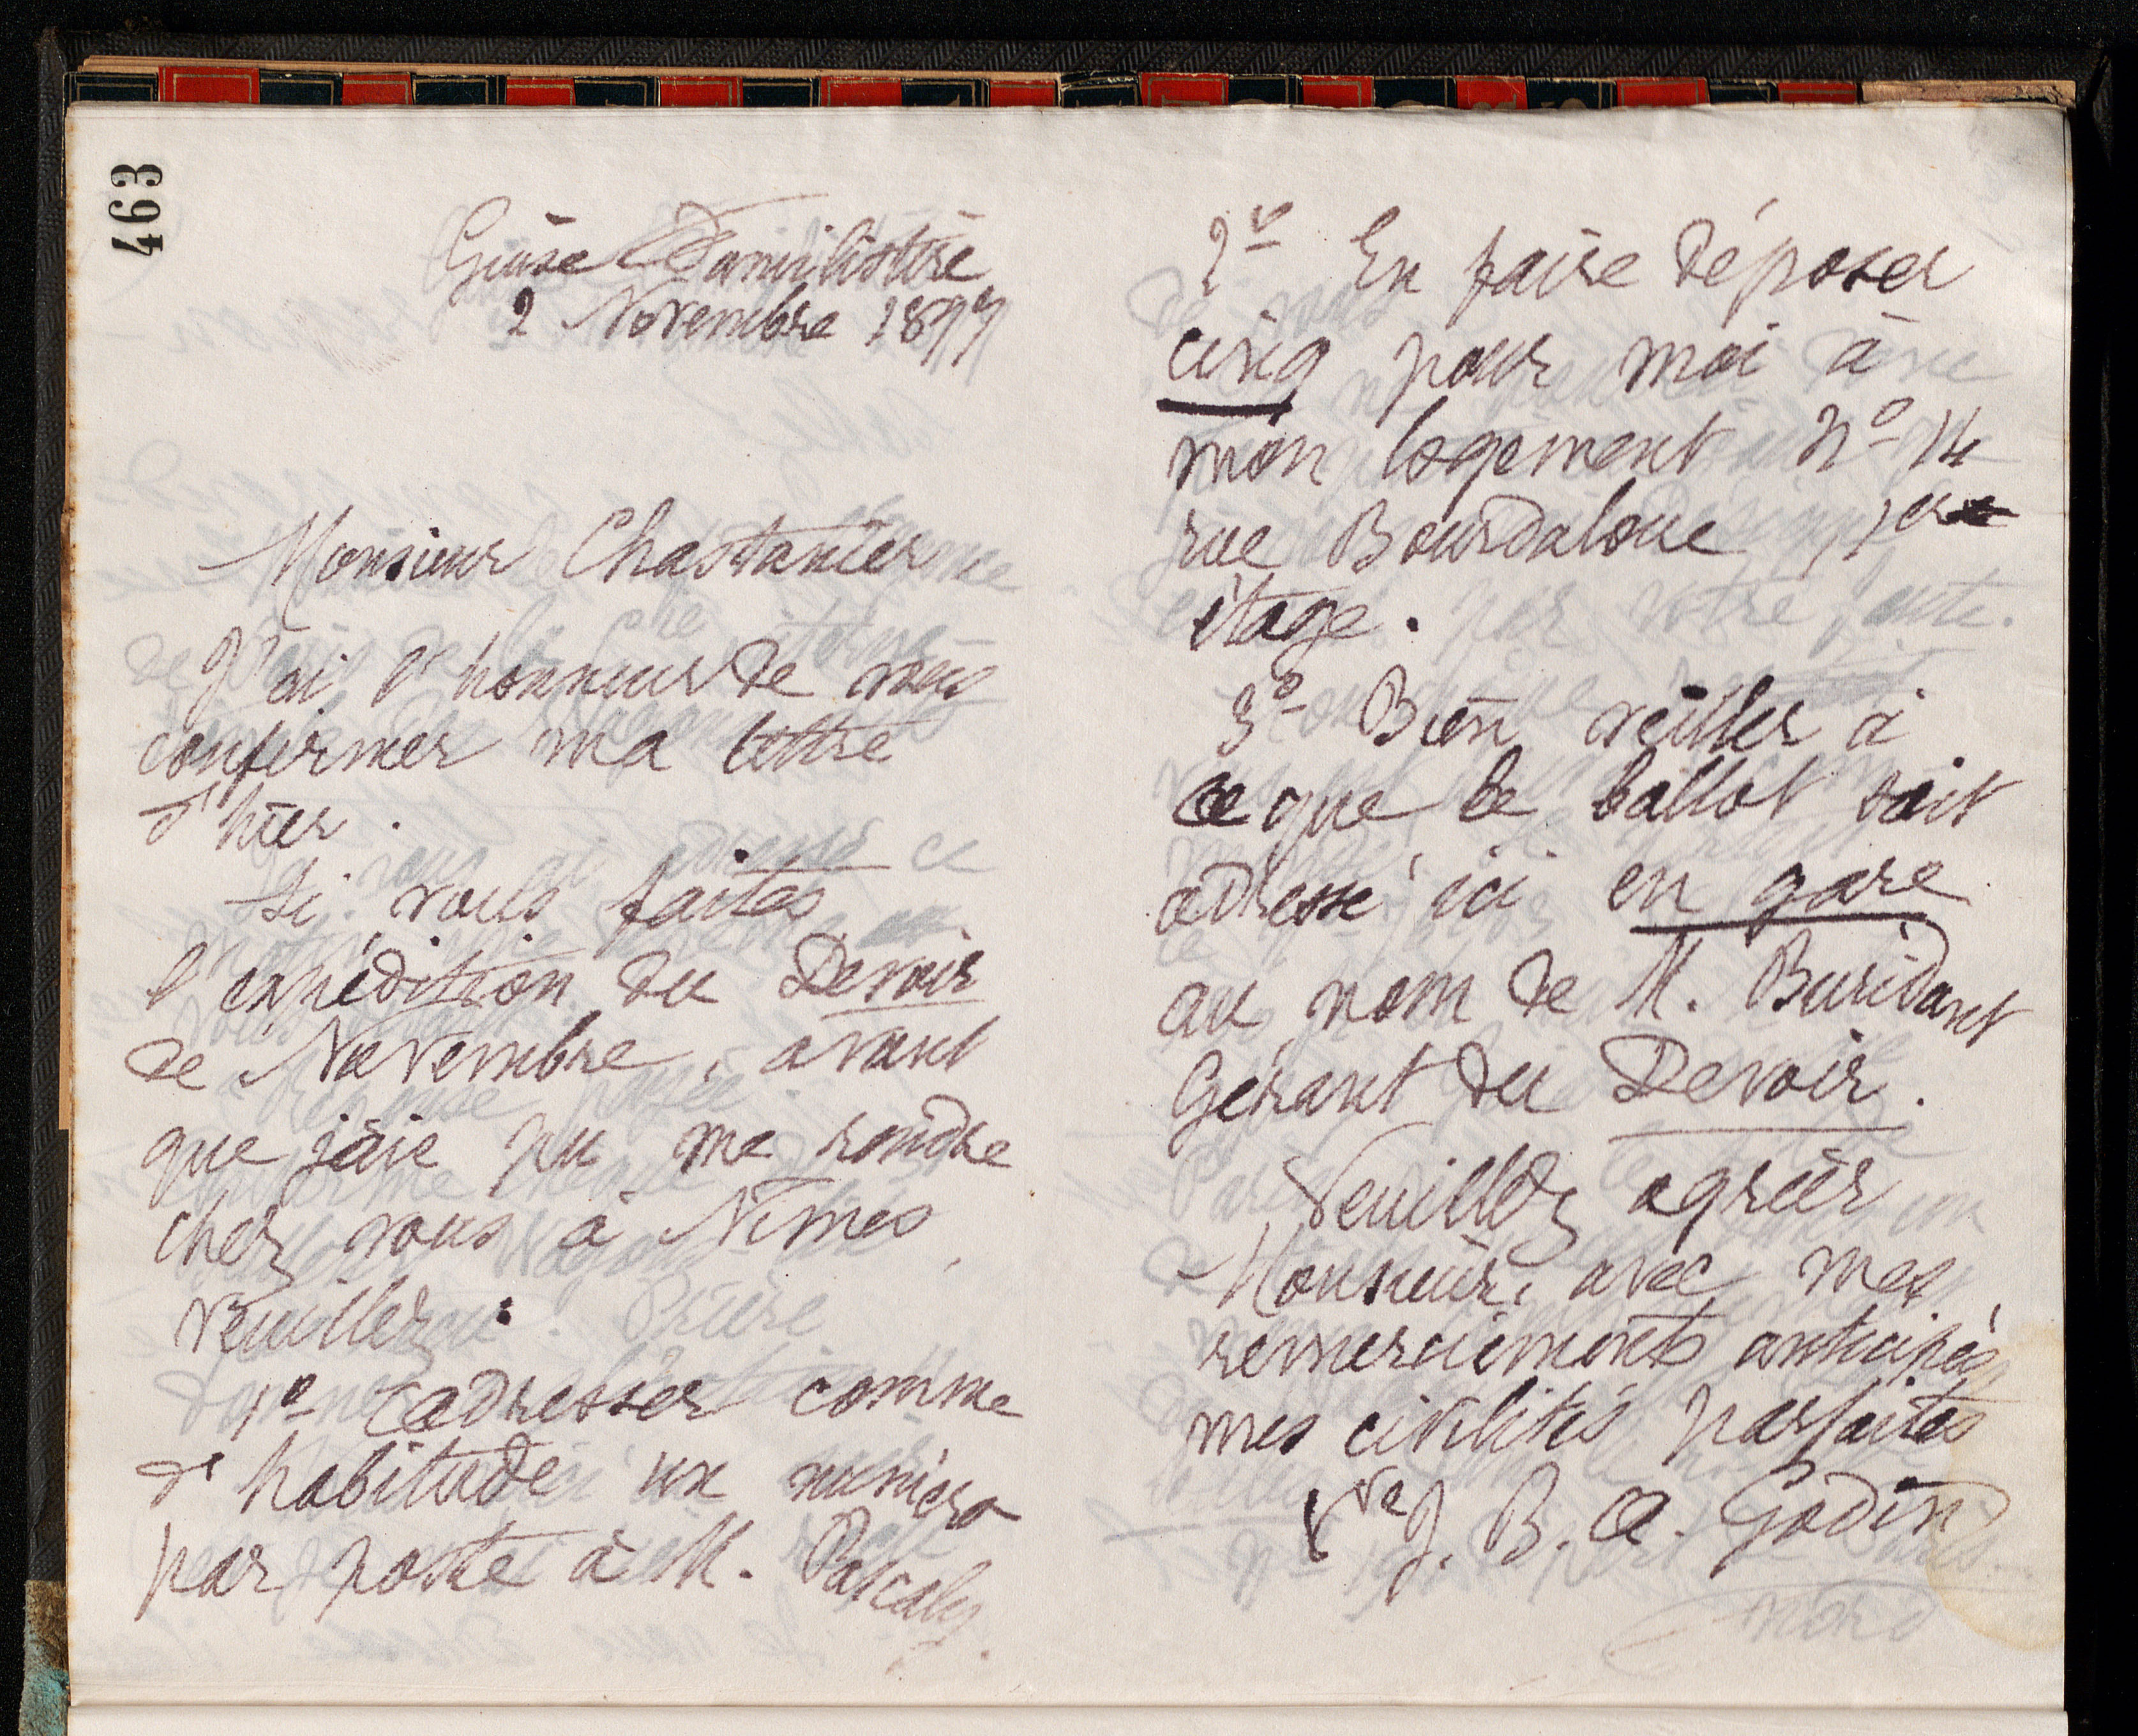 463
Guise Familistère
2 Novembre 1897
Monsieur Chastanier
J'ai l'honneur de vous
confirmer ma lettre
d'hier.
Si vous faites
l'expédition du Devoir
de Novembre, avant
que j'aie pu me rendre
chez vous à Nîmes,
veuillez :
1º adresser comme
d'habitude un numéro
par poste à M. Pascaly.
2º En faire déposer
cinq pour moi à
mon logement nº 14
rue Bourdaloue, 1er
étage.
3º Bien veiller à
ce que le ballot soit
adressé ici en gare
au nom de M. Buridant
Gérant du Devoir.
Veuillez agréer
Monsieur, avec mes
remerciements anticipés,
mes civilités parfaites
Vve J. B. A. Godin